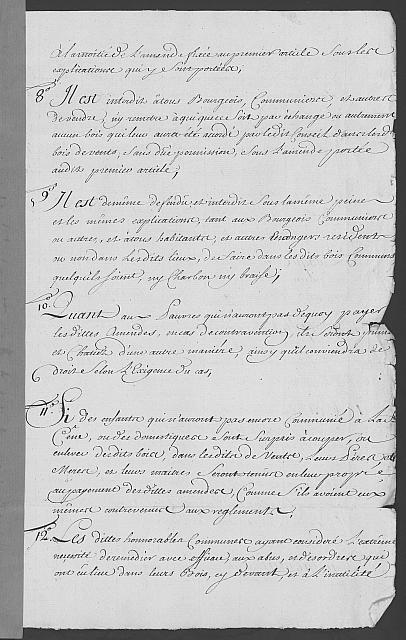 a la moitié de L'amende fixée au premier article sous les
explications qui y sont portées;
8° Il est interdit à tous Bourgeois, Communiers, et autres
de vendre, ny remettre à qui que ce soit par échange ou autrement
aucun bois qui leur aura été acordé par ledit Conseil dans les dits
bois de vents, sans due permission, sous L'amende portée
audit premier article;
9° Il est de même défendu et interdit sous la même peine
et les mêmes explications, tant aux Bourgeois Communiers
ou autres, et à tous habitants, et autres Etrangers resident
ou non dans Lesdits Lieux, de faire dans les dits bois Communs
quelqu'ils soient, ny Charbon ny braise;
10° Quant aux Pauvres qui n'auront pas dequoy payer
les dittes Amendes, en cas de contravention, ils seront punis
et Chatiés d'une autre maniére ainsy qu'il conviendra de
Droit et selon L'Exigence du cas;
11° Si des enfants qui n'auront pas encore Communié à La
Céne, ou des domestiques sont surpris à couper, ou
enlever desdits bois, dans lesdits de Vents, Leurs Péres et
Meres, et leurs maitres seront tenus en leur propre
au payement des dittes amendes, Comme s'ils avoient eux
mêmes contrevenus aux reglements;
12° Les dittes honnorables Communes ayant consideré L'extrême
necessité de remedier avec efficace, aux abus, et desordres qui
ont eu lieu dans leurs Bois, cy devant, et à L'inutilité